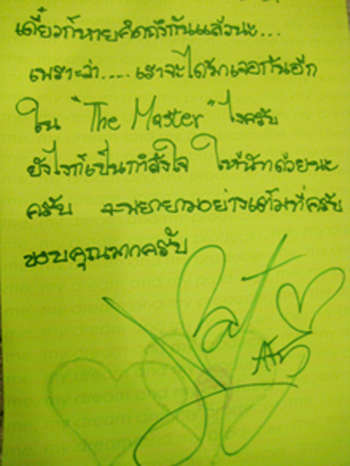 เดี๋ยวก็หายคิดถึงกันแล้วนะ...
เพราะว่า..... เราจะได้มาเจอกันอีก
ใน "The Master" ไงครับ
ยังไงก็เป็นกำลังใจ ให้นัทด้วยนะ
ครับ จะพยายามอย่างเต็มที่ครับ
ขอบคุณมากครับ
Nat
AF5
me, my dream and my